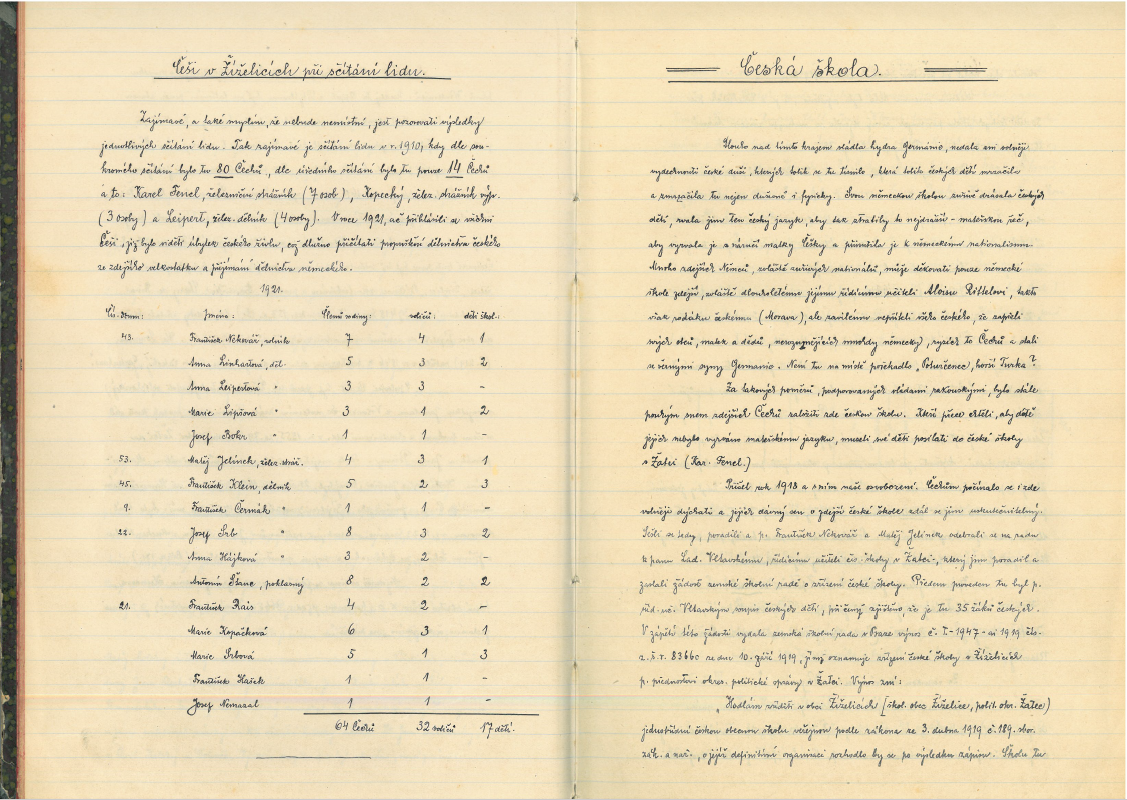 Češi v Žíželicích při sčítání lidu.
Zajímavé, a také myslím, že nebude nemístní, jest pozorovati výsledky
jednotlivých sčítání lidu. Tak zajímavé je sčítání lidu v r. 1910, kdy dle sou-
kromého sčítání bylo tu 80 Čechů, dle úředního sčítání bylo tu pouze 14 Čechů
a to: Karel Fencl, železniční strážník (7 osob), Kopecký, želez. strážník výp.
(3 osoby) a Leipert, želez. dělník (4 osoby). V roce 1921, ač přihlásili se všichni
Češi, jež bylo viděti úbytek českého živlu, což dlužno přičítati propuštění dělnictva českého
ze zdejšího velkostatku a přijímání dělnictva německého.
1921.
Čís. dom: Jméno: Členů rodiny: rodičů: dětí škol:
43. František Nekovář, rolník 7 4 1
Anna Linhartová, děl. 5 3 2
Anna Leipertová " 3 3 -
Marie Lipšová " 3 1 2
Josef Bohr " 1 1 -
53. Matěj Jelínek, želez. stráž. 4 3 1
45. František Klein, dělník 5 2 3
9. František Čermák " 1 1 -
22. Josef Srb " 8 3 2
Anna Hájková " 3 2
Antonín Štanc, poklasný 8 2 2
21. František Rais 4 2 -
Marie Kopáčková 6 3 1
Marie Srbová 5 1 3
František Hašek 1 1 -
Josef Nemazal 1 1 -
64 Čechů 32 rodičů 17 dětí.
Česká škola.
Dlouho nad tímto krajem vládla hydra Germánie, nedala ani volněji
vydechnouti české duši, kterých tolik se tu tísnilo, která tolik českých dětí mrzačila
a zmrzačila tu nejen duševně i fysicky. Svou německou školou zuřivě drásala českých
dětí, rvala jim ten český jazyk, aby tak ztratily to nejdražší - mateřskou řeč,
aby vyrvala je z náručí matky Češky a přinutila je k německému nationalismu.
Mnoho zdejších Němců, zvláště zuřivých nationálů, může děkovati pouze německé
škole zdejší, zvláště dlouholetému jejímu řídícímu učiteli Aloisu Rittelovi, takto
však rodáku českému (Morava), ale zavilému nepříteli všeho českého, že zapřeli
svých otců, matek a dědů, neuznávajících mnohdy německy, ryzích to Čechů a stali
se věrnými syny Germanie. Není tu na místě pořekadlo „Poturčenec, horší Turka?
Za takových poměrů, podporovaných vládami rakouskými, bylo stále
pouhým snem zdejších Čechů založiti zde českou školu. Kteří přece chtěli, aby dítě
jejich nebylo vyrváno mateřskému jazyku, museli své děti posílati do české školy
v Žatci (Kar. Fencl.)
Přišel rok 1918 a s ním naše osvobození. Čechům počínalo se i zde
volněji dýchati a jejich dávný sen o zdejší české škole zdál se jim uskutečnitelný.
Sešli se tedy, poradili a p. František Nekovář a Matěj Jelínek odebrali se na radu
k panu Lad. Vltavskému, řídícímu učiteli čes. školy v Žatci, který jim poradil a
zaslali žádost zemské školní radě o zřízení české školy. Předem proveden tu byl p.
říd. uč. Vltavským soupis českých dětí, při čemž zjištěno, že je tu 35 žáků českých.
V zápětí této žádosti vydala zemská školní rada v Praze výnos č. I.-1947-ai 1919 čís.
z. š. r. 83660 ze dne 10. září 1919, jímž oznamuje zřízení české školy v Žíželicích
p. přednostovi okres. politické správy v Žatci. Výnos zní:
„Hodlám zříditi v obci Žíželicích [škol. obec Žíželice, polit. okr. Žatec)
jednotřídní českou obecnou školu veřejnou podle zákona ze 3. dubna 1919 č. 189. sbor.
zák. a nař., o jejíž definitivní organisaci rozhodlo by se po výsledku zápisu. Školu tu